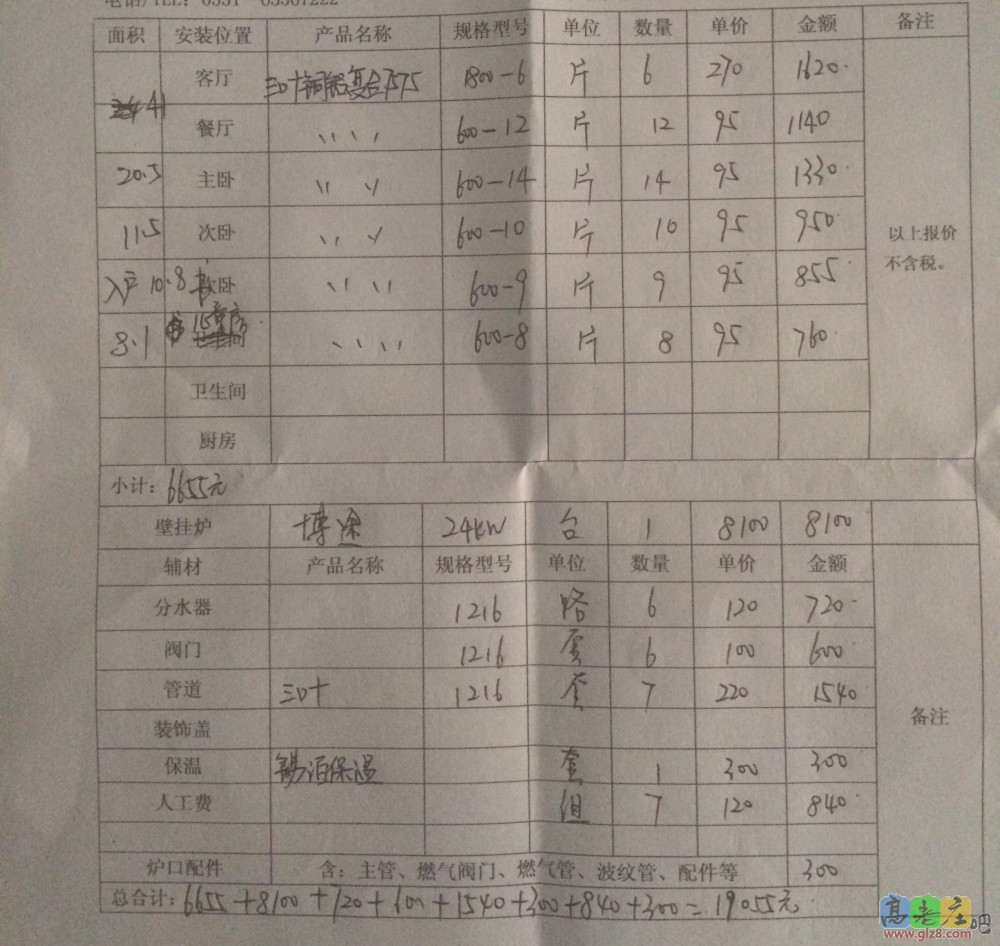 电话/TEL: 0551-65567222
面积 安装位置 产品名称 规格型号 单位 数量 单价 金额 备注
41 客厅 三叶铜铝复合7575 1800-6 片 6 270 1620
餐厅 〃 〃 600-12 片 12 95 1140
20.5 主卧 〃 〃 600-14 片 14 95 1330
11.5 次卧 〃 〃 600-10 片 10 95 950 以上报价
不含税。
入户 10.8 次卧 〃 〃 600-9 片 9 95 855
8.1 600-8 片 8 95 760
卫生间
厨房
小计: 6655元
壁挂炉 博途 24kW 台 1 8100 8100
辅材 产品名称 规格型号 单位 数量 单价 金额
分水器 1216 路 6 120 720
阀门 1216 套 6 100 600
管道 三叶 1216 套 7 220 1540 备注
装饰盖
保温 锡泊保温 套 1 300 300
人工费 组 7 120 840
炉口配件 含:主管、燃气阀门、燃气管、波纹管、配件等 300
总合计: 6655+8100+720+600+1540+300+840+300=19055元
高老庄吧
www.glz8.com